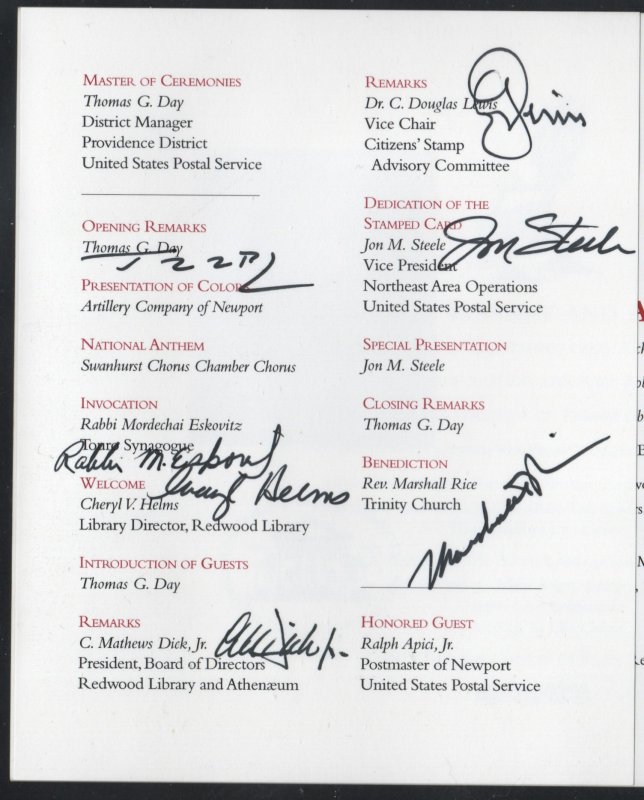 MASTER OF CEREMONIES
Thomas G. Day
District Manager
Providence District
United States Postal Service
OPENING REMARKS
Thomas G. Day
PRESENTATION OF COLORS
Artillery Company of Newport
NATIONAL ANTHEM
Swanhurst Chorus Chamber Chorus
INVOCATION
Rabbi Mordechai Eskovitz
Touro Synagogue
Rabbi M. Eskovitz
WELCOME
Cheryl Helms
Cheryl V. Helms
Library Director, Redwood Library
INTRODUCTION OF GUESTS
Thomas G. Day
REMARKS
C. Mathews Dick, Jr.
President, Board of Directors
Redwood Library and Athenæum
REMARKS
Dr. C. Douglas Lewis
Vice Chair
Citizens' Stamp
Advisory Committee
DEDICATION OF THE
STAMPED CARD
Jon M. Steele
Jon Steele
Vice President
Northeast Area Operations
United States Postal Service
SPECIAL PRESENTATION
Jon M. Steele
CLOSING REMARKS
Thomas G. Day
BENEDICTION
Rev. Marshall Rice
Trinity Church
Marshall Rice
HONORED GUEST
Ralph Apici, Jr.
Postmaster of Newport
United States Postal Service